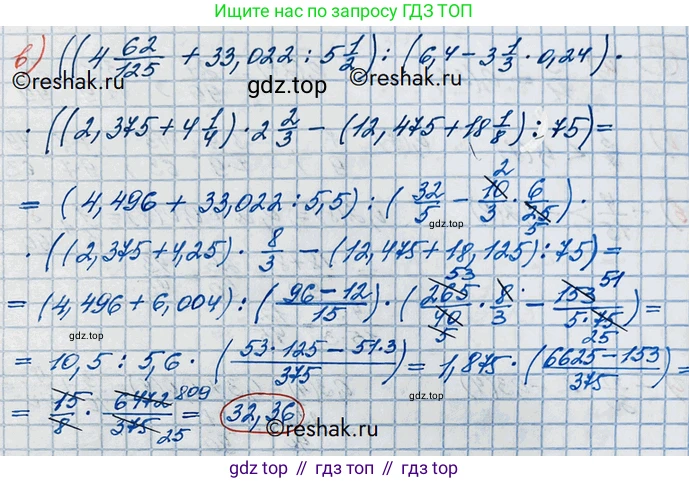 Ищите нас по запросу ГДЗ ТОП
в) ((4 62/125 + 33,022 : 5 1/2) : (6,4 - 3 1/3 · 0,24) ·
©reshak.ru gdz.top ©reshak.ru
· ((2,375 + 4 1/4) · 2 2/3 - (12,475 + 18 1/8) : 75) =
= (4,496 + 33,022 : 5,5) : (32/5 - 10/3 · 6/25) · 2 5
gdz.top
· ((2,375 + 4,25) · 8/3 - (12,475 + 18,125) : 75) =
= (4,496 + 6,004) : (96 - 12/15) · (265/40 · 8/3 - 153/5·75) = 53 5 51 25
gdz.top gdz.top
= 10,5 : 5,6 · (53 · 125 - 51 · 3/375) = 1,875 · (6625 - 153/375) =
= 15/8 · 6472/375 = 32,36 809 25
©reshak.ru ©reshak.ru
gdz top // gdz top // gdz.top